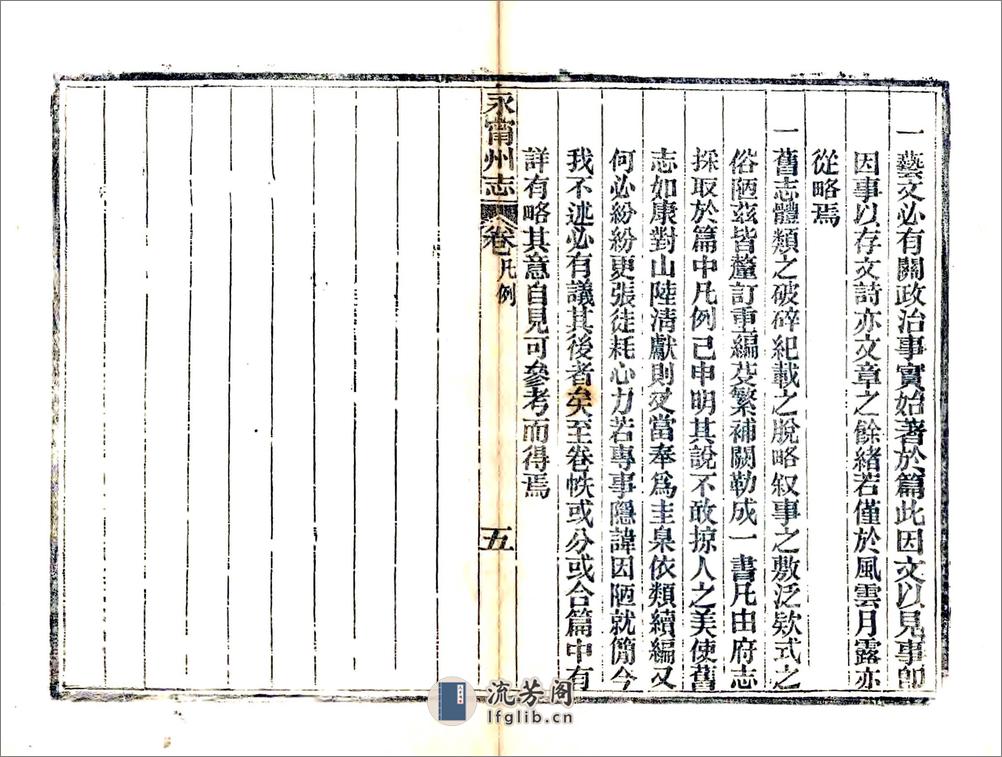 一藝文必有關政治事實始著於篇此因文以見事卽
因事以存文詩亦文章之餘緒若僅於風雲月露亦
從略焉
一舊志體類之破碎紀載之脫略叙事之敷泛欵式之
俗陋茲皆釐訂重編芟繁補闕勒成一書凡由府志
採取於篇中凡例已申明其說不敢掠人之美使舊
志如康對山陸淸獻則又當奉爲圭臬依類續編又
何必紛紛更張徒耗心力若專事隱諱因陋就簡今
我不述必有議其後者矣至卷帙或分或合篇中有
詳有略其意自見可參考而得焉
永甯州志 卷 凡例 五
流芳阁
lfglib.cn